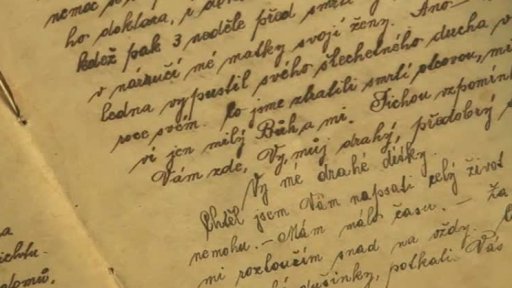 nemoc s
ho doktora, i dě
když pak 3 neděle před smrt
v náručí mé matky svojí ženy. Ano
ledna vypustil svého šlechetného ducha v
roce svém. Co jsme ztratili smrtí otcovou, mi
ví jen milý Bůh a mi. Tichou vzpomínk
Vám zde, Vy, můj drahý, předobrý
Vy mé drahé dítky.
Chtěl jsem Vám napsati celý život
nemohu. – Mám málo času. – Za
mi rozloučím snad na vždy.
dušinky, potkali Vás
a
domů,